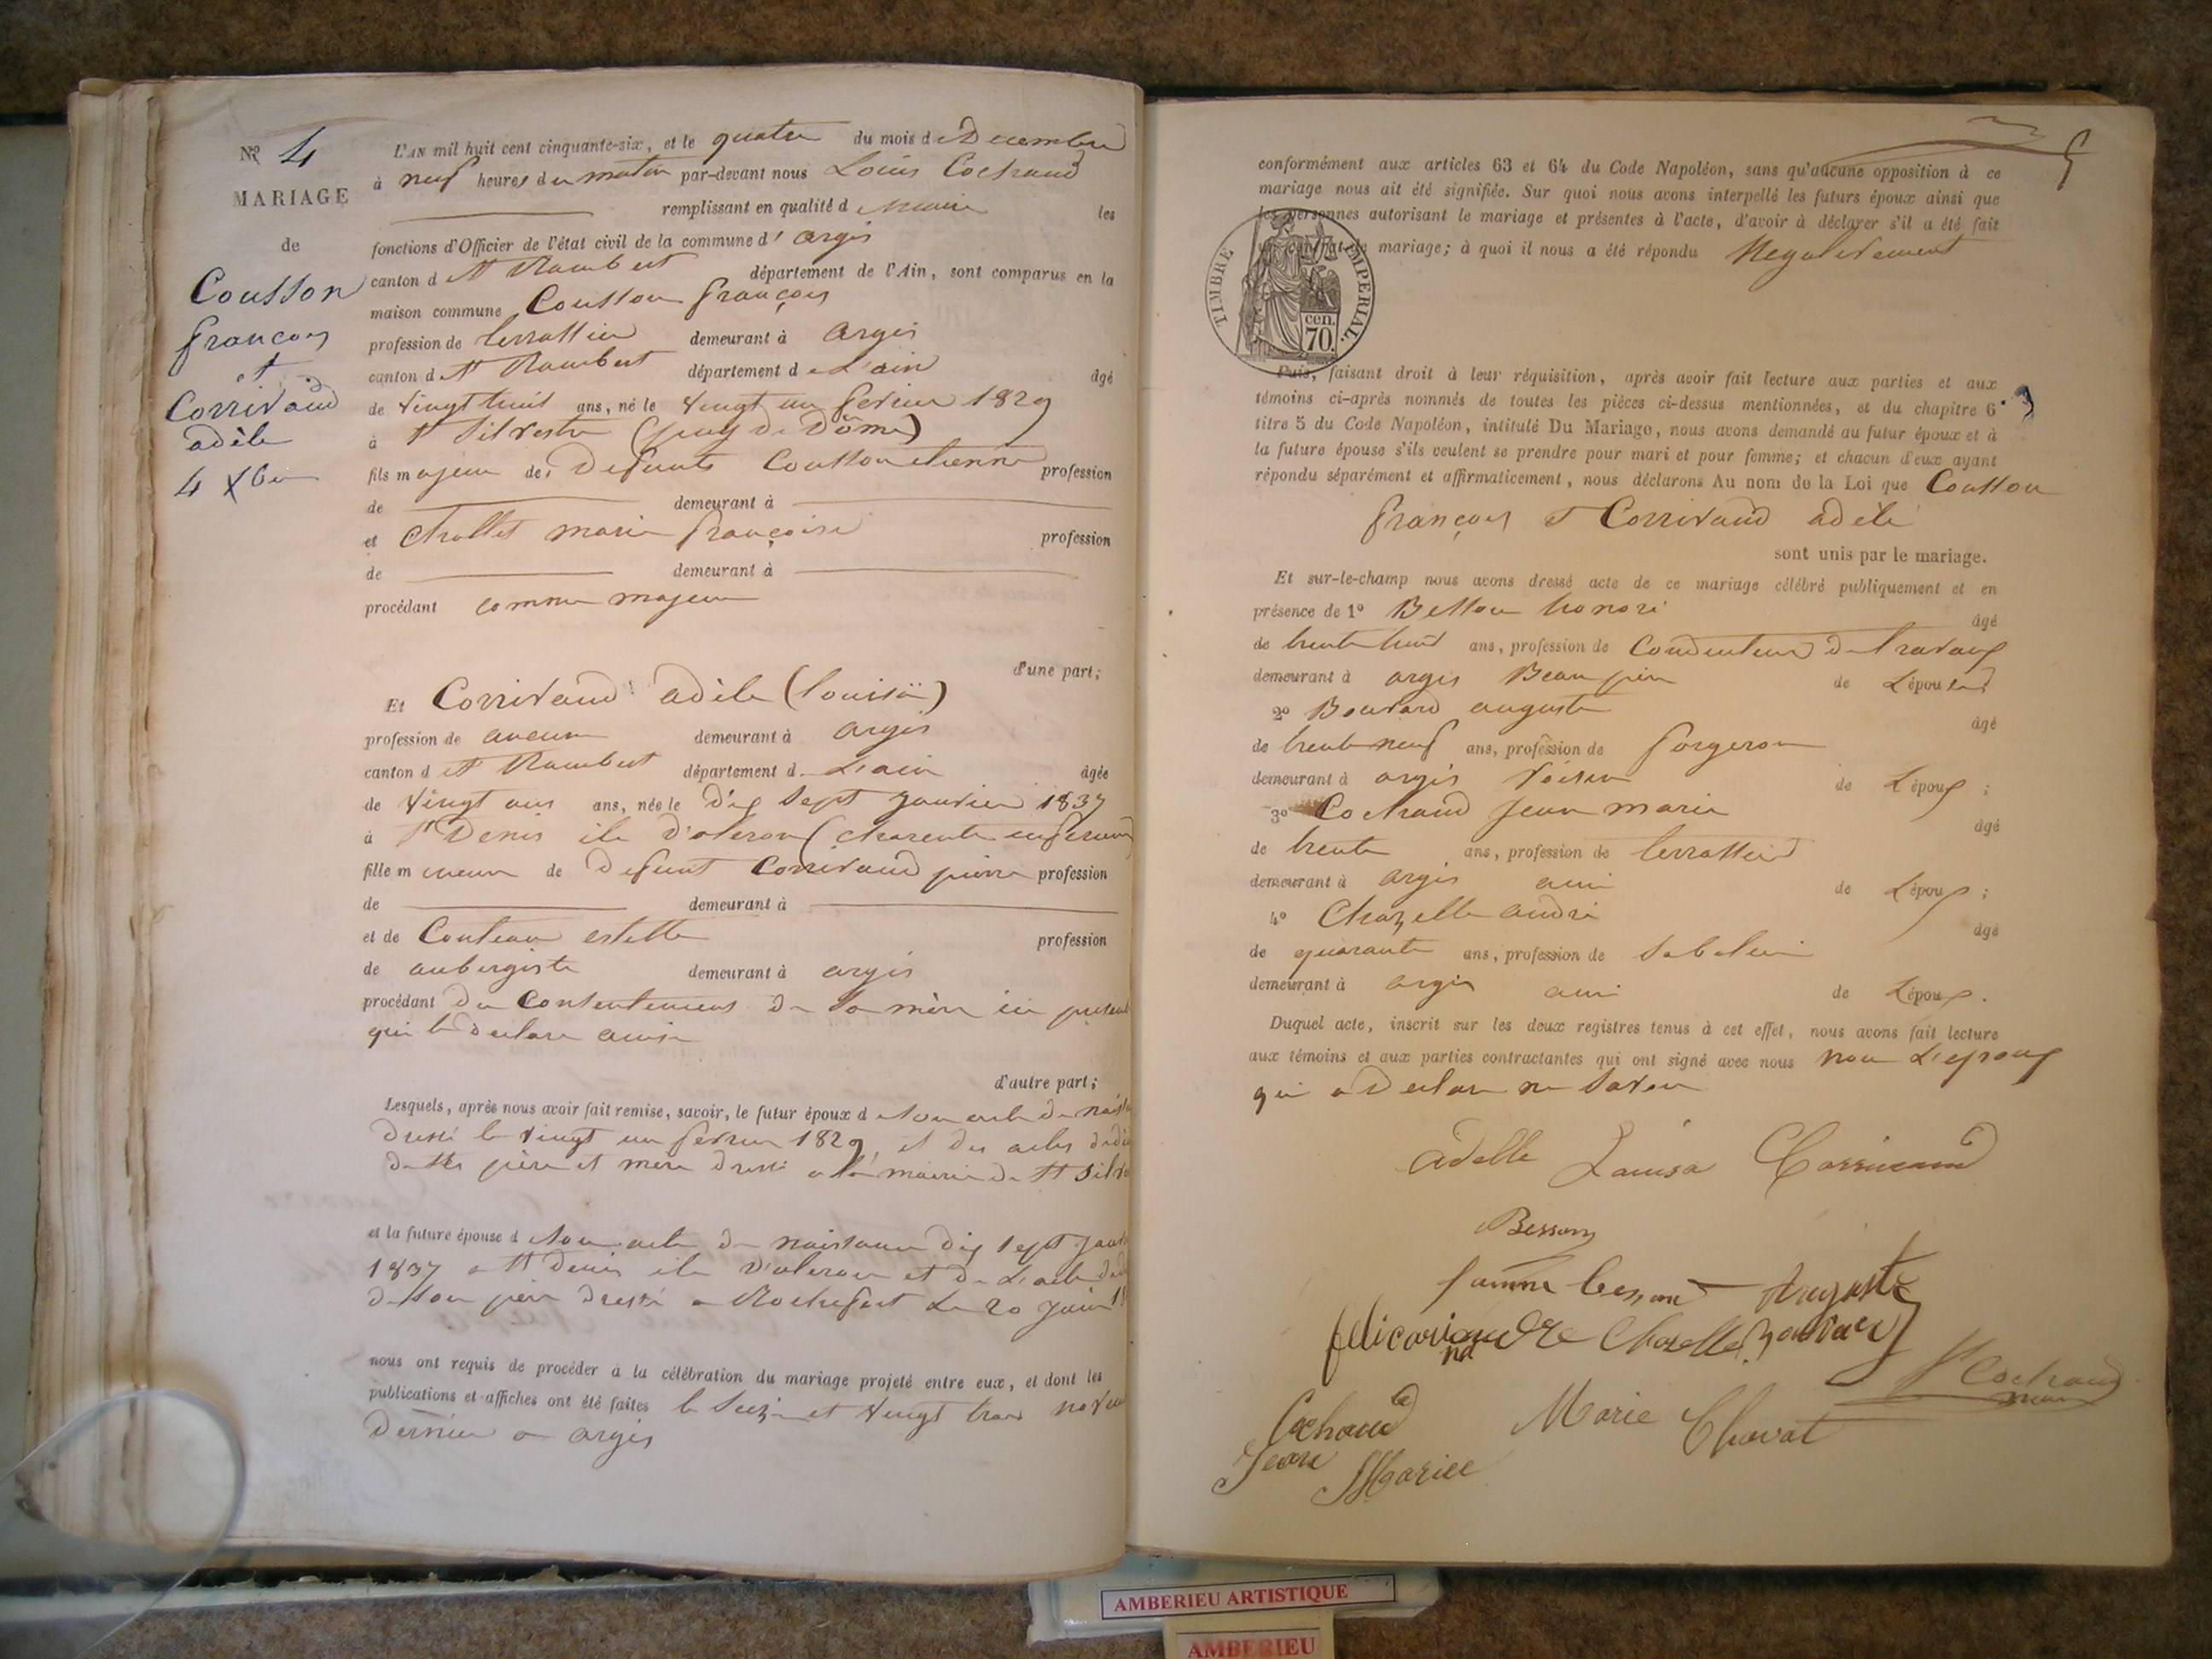 Nº 4
MARIAGE
de
Cousson
françois
et
Corrivaud
adèle
4 Xbre
L'AN mil huit cent cinquante-six, et le quatre du mois de Decembre
à neuf heures du matin par-devant nous Louis Cochaud
remplissant en qualité de maire les
fonctions d'Officier de l'état civil de la commune d' argis
canton de St Rambert département de l'Ain, sont comparus en la
maison commune Cousson françois
profession de terrassier demeurant à argis
canton de St Rambert département de L'ain âgé
de vingt huit ans, né le vingt un fevrier 1829
à St Silvestre (puy de Dôme)
fils majeur de defunts Cousson etienne profession
de demeurant à
et Chollet marie françoise profession
de demeurant à
procédant comme majeur
d'une part;
Et Corrivaud adèle (louisa)
profession de aucune demeurant à argis
canton de St Rambert département de L'ain âgée
de vingt ans ans, née le dix sept janvier 1837
à St Denis ile d'oleron (charente inferieure
fille mineure de defunt Corrivaud pierre profession
de demeurant à
et de Couteau estelle profession
de aubergiste demeurant à argis
procédant du Consentement de sa mère ici présente
qui le declare ainsi
d'autre part;
Lesquels, après nous avoir fait remise, savoir, le futur époux de son acte de
dressé le vingt un fevrier 1829, et des actes de
de ses père et mère dressé a la mairie de St
et la future épouse de son acte de naissance dix sept
1837 a St Denis ile d'oleron et de L'acte
de son père dressé a Rochefort Le 20 juin
nous ont requis de procéder à la célébration du mariage projeté entre eux, et dont les
publications et affiches ont été faites le seize et vingt trois
dernier a argis
conformément aux articles 63 et 64 du Code Napoléon, sans qu'aucune opposition à ce
mariage nous ait été signifiée. Sur quoi nous avons interpellé les futurs époux ainsi que
les personnes autorisant le mariage et présentes à l'acte, d'avoir à déclarer s'il a été fait
un contrat de mariage; à quoi il nous a été répondu Negativement
TIMBRE IMPERIAL.
cen.
70.
Puis, faisant droit à leur réquisition, après avoir fait lecture aux parties et aux
témoins ci-après nommés de toutes les pièces ci-dessus mentionnées, et du chapitre 6
titre 5 du Code Napoléon, intitulé Du Mariage, nous avons demandé au futur époux et à
la future épouse s'ils veulent se prendre pour mari et pour femme; et chacun d'eux ayant
répondu séparément et affirmativement, nous déclarons Au nom de la Loi que Cousson
françois et Corrivaud adèle
sont unis par le mariage.
Et sur-le-champ nous avons dressé acte de ce mariage célébré publiquement et en
présence de 1º Besson honoré âgé
de trente huit ans, profession de Conducteur de travaux
demeurant à argis Beau père de L'épouse
2º Bouvard auguste âgé
de trente neuf ans, profession de forgeron
demeurant à argis voisin de L'époux;
3º Cochaud Jean marie âgé
de trente ans, profession de terrassier
demeurant à argis ami de L'époux;
4º Chazelle andré âgé
de quarante ans, profession de Sabotier
demeurant à argis ami de L'époux.
Duquel acte, inscrit sur les deux registres tenus à cet effet, nous avons fait lecture
aux témoins et aux parties contractantes qui ont signé avec nous non L'epoux
qui a declare ne savoir
Adelle Louisa Corrivaud
Besson
Auguste
Chazelle Bouvard
Cochaud
Jean Mariee
Marie Chavat
Cochaud
maire
AMBERIEU ARTISTIQUE
AMBERIEU